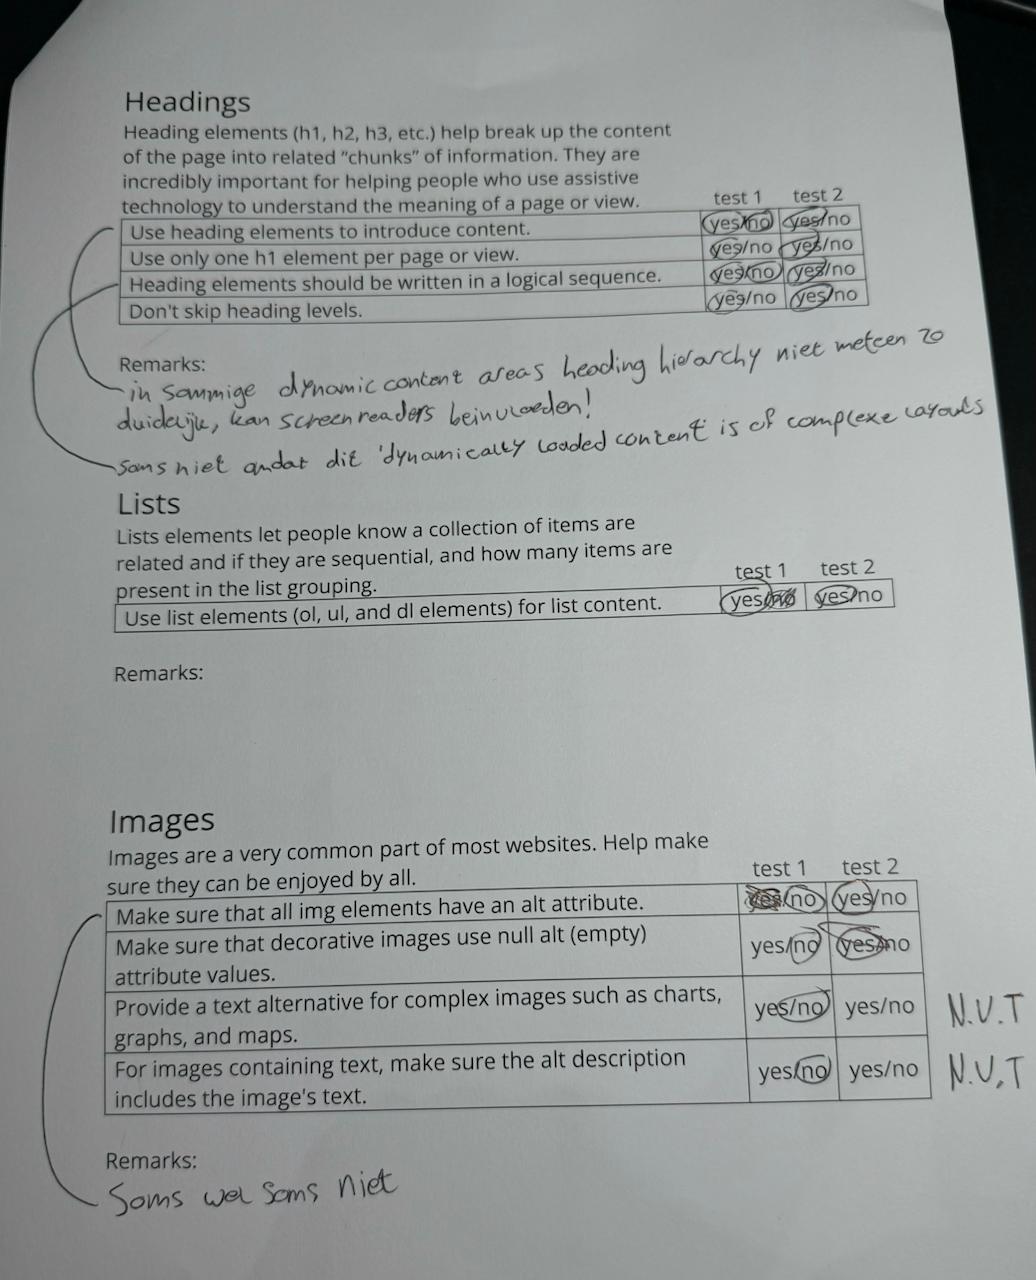 Headings
Heading elements (h1, h2, h3, etc.) help break up the content
of the page into related “chunks” of information. They are
incredibly important for helping people who use assistive
technology to understand the meaning of a page or view. test 1 test 2
Use heading elements to introduce content. yes/no yes/no
Use only one h1 element per page or view. yes/no yes/no
Heading elements should be written in a logical sequence. yes/no yes/no
Don't skip heading levels. yes/no yes/no
Remarks:
in sommige dynamic content areas heading hierarchy niet meteen zo
duidelijk, kan screenreaders beinvloeden!
soms niet omdat dit 'dynamically loaded content' is of complexe layouts
Lists
Lists elements let people know a collection of items are
related and if they are sequential, and how many items are
present in the list grouping. test 1 test 2
Use list elements (ol, ul, and dl elements) for list content. yes/no yes/no
Remarks:
Images
Images are a very common part of most websites. Help make
sure they can be enjoyed by all. test 1 test 2
Make sure that all img elements have an alt attribute. yes/no yes/no
Make sure that decorative images use null alt (empty)
attribute values. yes/no yes/no
Provide a text alternative for complex images such as charts,
graphs, and maps. yes/no yes/no N.V.T
For images containing text, make sure the alt description
includes the image's text. yes/no yes/no N.V.T
Remarks:
Soms wel soms niet